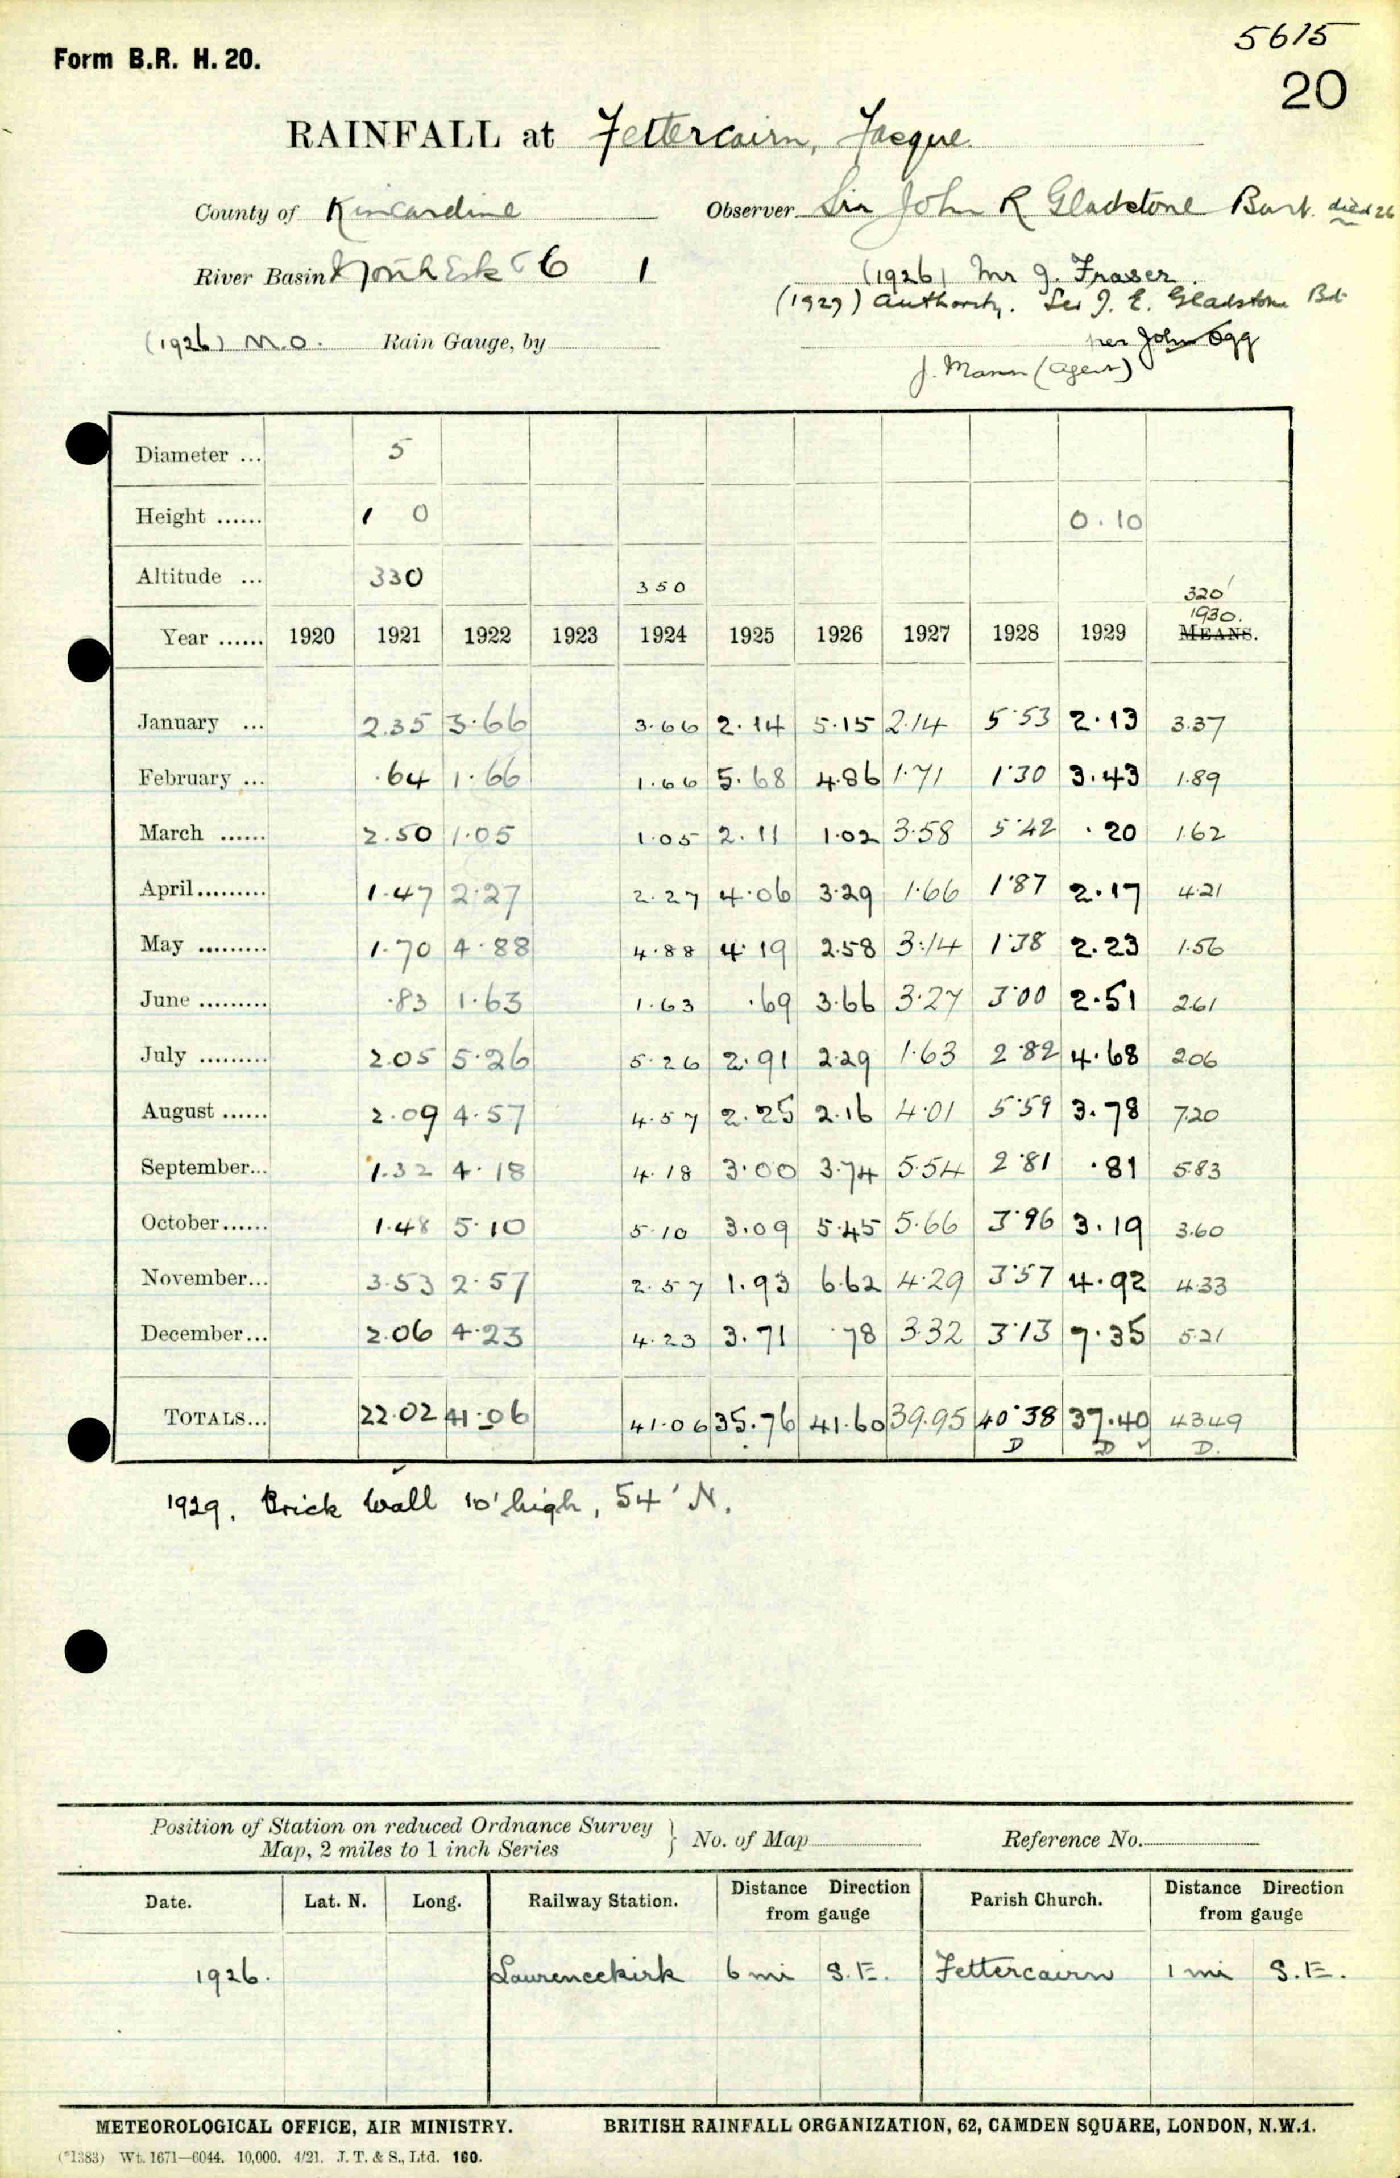 5615
Form B.R. H. 20.
20
RAINFALL at Fettercairn, Fasque.
County of Kincardine
Observer Sir John R Gladstone Bart. died 26
River Basin North Esk 6 1
(1926) Mr J. Fraser.
(1927) Authority. Sir J. E. Gladstone Bt.
(1926) M.O. Rain Gauge, by
per John Ogg
J. Mann (agent)
Diameter ... 5
Height ...... 1 0 0.10
Altitude ... 330 350 320'
1930.
Year ...... 1920 1921 1922 1923 1924 1925 1926 1927 1928 1929 MEANS.
January ... 2.35 3.66 3.66 2.14 5.15 2.14 5.53 2.13 3.37
February ... .64 1.66 1.66 5.68 4.86 1.71 1.30 3.43 1.89
March ...... 2.50 1.05 1.05 2.11 1.02 3.58 5.42 .20 1.62
April......... 1.47 2.27 2.27 4.06 3.29 1.66 1.87 2.17 4.21
May ......... 1.70 4.88 4.88 4.19 2.58 3.14 1.38 2.23 1.56
June ......... .83 1.63 1.63 .69 3.66 3.27 3.00 2.51 2.61
July ......... 2.05 5.26 5.26 2.91 2.29 1.63 2.82 4.68 2.06
August ...... 2.09 4.57 4.57 2.25 2.16 4.01 5.59 3.78 7.20
September... 1.32 4.18 4.18 3.00 3.74 5.54 2.81 .81 5.83
October...... 1.48 5.10 5.10 3.09 5.45 5.66 3.96 3.19 3.60
November... 3.53 2.57 2.57 1.93 6.62 4.29 3.57 4.92 4.33
December... 2.06 4.23 4.23 3.71 .78 3.32 3.13 7.35 5.21
TOTALS... 22.02 41.06 41.06 35.76 41.60 39.95 40.38 37.40 43.49
D D ✓ D.
1929. Brick Wall 10' high, 54' N.
Position of Station on reduced Ordnance Survey
Map, 2 miles to 1 inch Series
No. of Map
Reference No.
Date. Lat. N. Long. Railway Station. Distance Direction from gauge Parish Church. Distance Direction from gauge
1926. Laurencekirk 6 mi S.E. Fettercairn 1 mi S.E.
METEOROLOGICAL OFFICE, AIR MINISTRY. BRITISH RAINFALL ORGANIZATION, 62, CAMDEN SQUARE, LONDON, N.W.1.
(*1383) Wt. 1671—6044. 10,000. 4/21. J. T. & S., Ltd. 160.